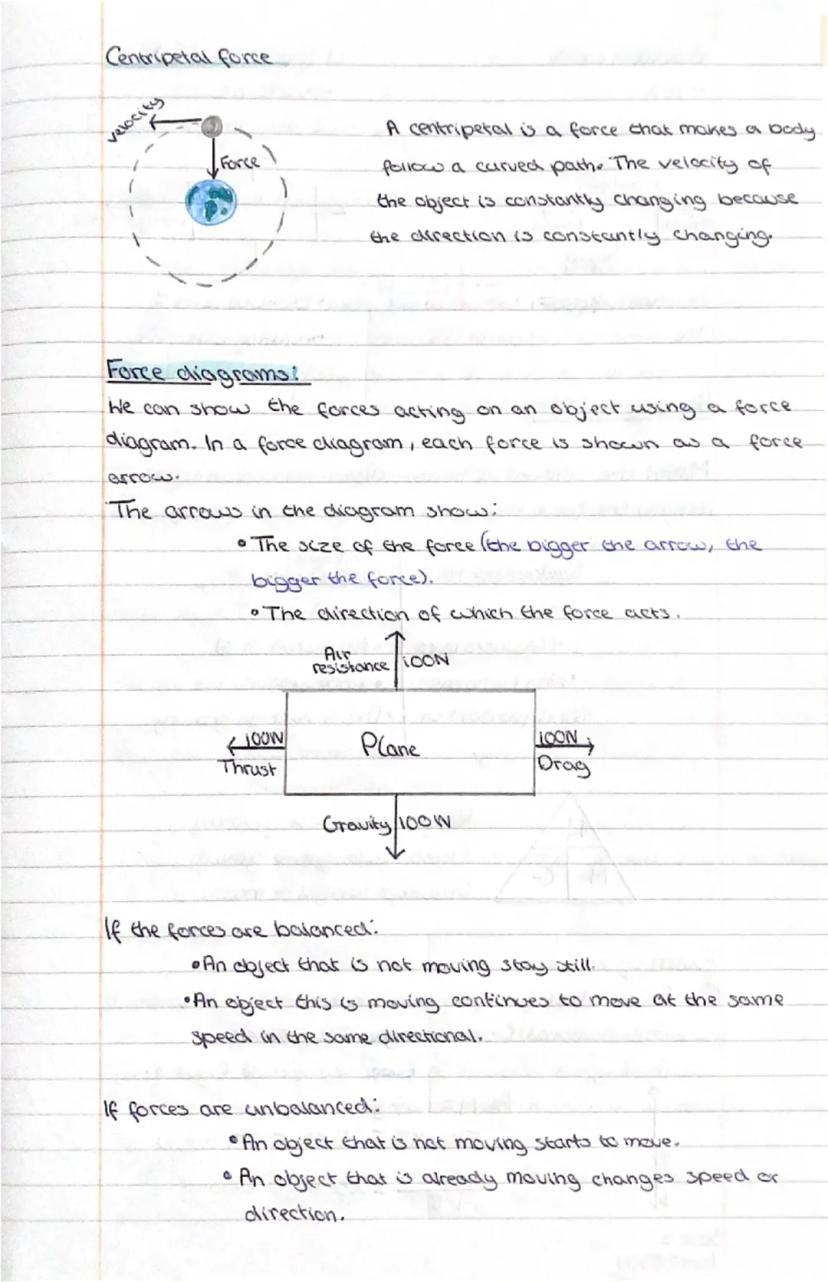 Centripetal force
velocity
Force
A centripetal is a force that makes a body
follow a curved path. The velocity of
the object is constantly changing because
the direction is constantly changing.
Force diagrams:
We can show the forces acting on an object using a force
diagram. In a force diagram, each force is shown as a force
arrow.
The arrows in the diagram show:
• The size of the force (the bigger the arrow, the
bigger the force).
• The direction of which the force acts.
Air
resistance 100N
100N
Thrust
Plane
100N
Drag
Gravity 100N
If the forces are balanced:
• An object that is not moving stay still.
• An object this is moving continues to move at the same
speed in the same directional.
If forces are unbalanced:
• An object that is not moving starts to move.
• An object that is already moving changes speed or
direction.